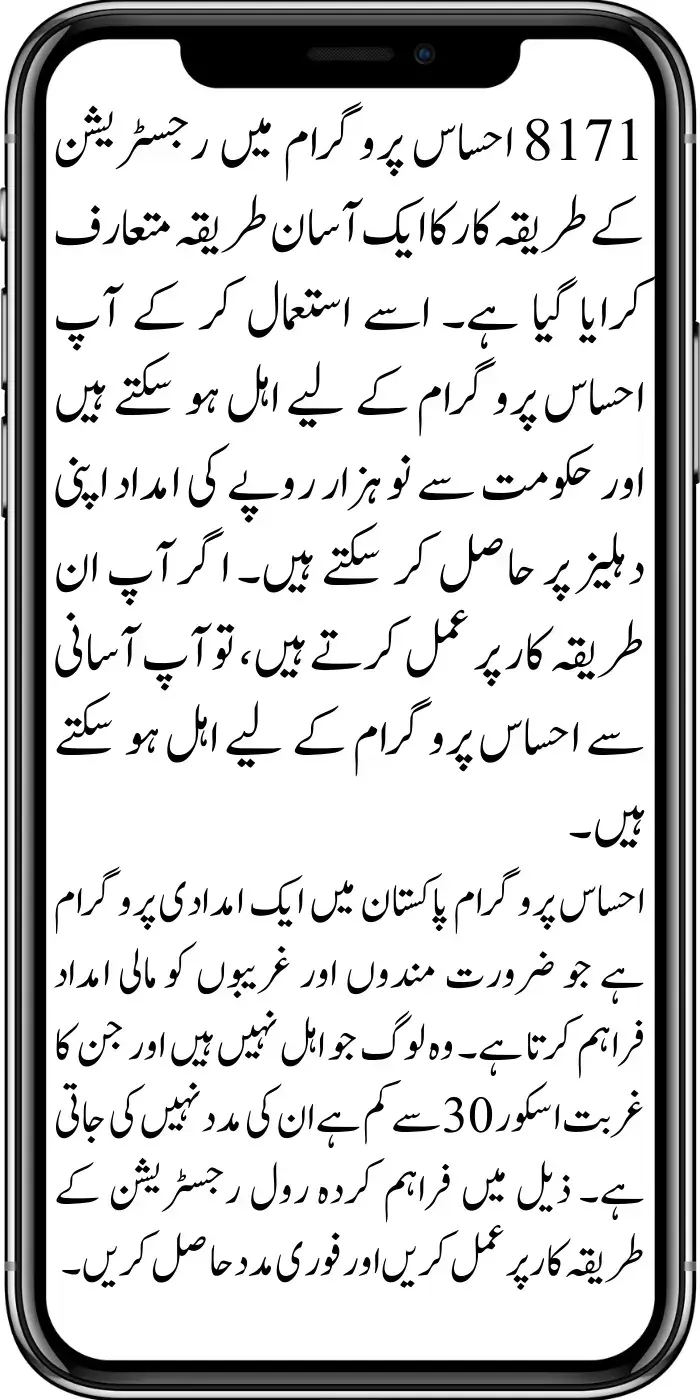 8171 احساس پروگرام میں رجسٹریشن
کے طریقہ کار کا ایک آسان طریقہ متعارف
کرایا گیا ہے۔ اسے استعمال کر کے آپ
احساس پروگرام کے لیے اہل ہو سکتے ہیں
اور حکومت سے نو ہزار روپے کی امداد اپنی
دہلیز پر حاصل کر سکتے ہیں۔ اگر آپ ان
طریقہ کار پر عمل کرتے ہیں، تو آپ آسانی
سے احساس پروگرام کے لیے اہل ہو سکتے
ہیں۔
احساس پروگرام پاکستان میں ایک امدادی پروگرام
ہے جو ضرورت مندوں اور غریبوں کو مالی امداد
فراہم کرتا ہے۔ وہ لوگ جو اہل نہیں ہیں اور جن کا
غربت اسکور 30 سے کم ہے ان کی مدد نہیں کی جاتی
ہے۔ ذیل میں فراہم کردہ رول رجسٹریشن کے
طریقہ کار پر عمل کریں اور فوری مدد حاصل کریں۔